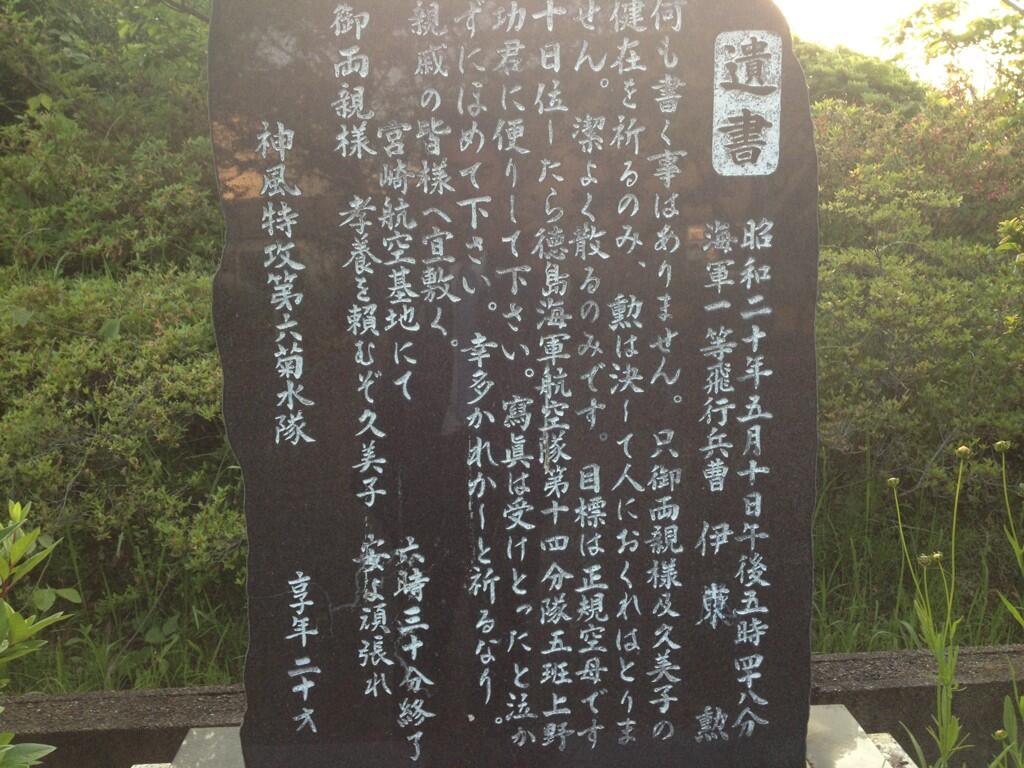 遺書
昭和二十年五月十日午後五時四十八分
海軍一等飛行兵曹 伊東 勲
何も書く事はありません。只御両親様及久美子の
健在を祈るのみ、勲は決して人におくれはとりま
せん。潔よく散るのみです。目標は正規空母です
十日位したら徳島海軍航空隊第十四分隊五班上野
功君に便りして下さい。寫眞は受けとったと泣か
ずにほめて下さい。幸多かれかしと祈るなり。
親戚の皆様へ宜敷く。
宮崎航空基地にて 六時三十分終了
御両親様 孝養を頼むぞ久美子 安は頑張れ
神風特攻第六菊水隊 享年二十六